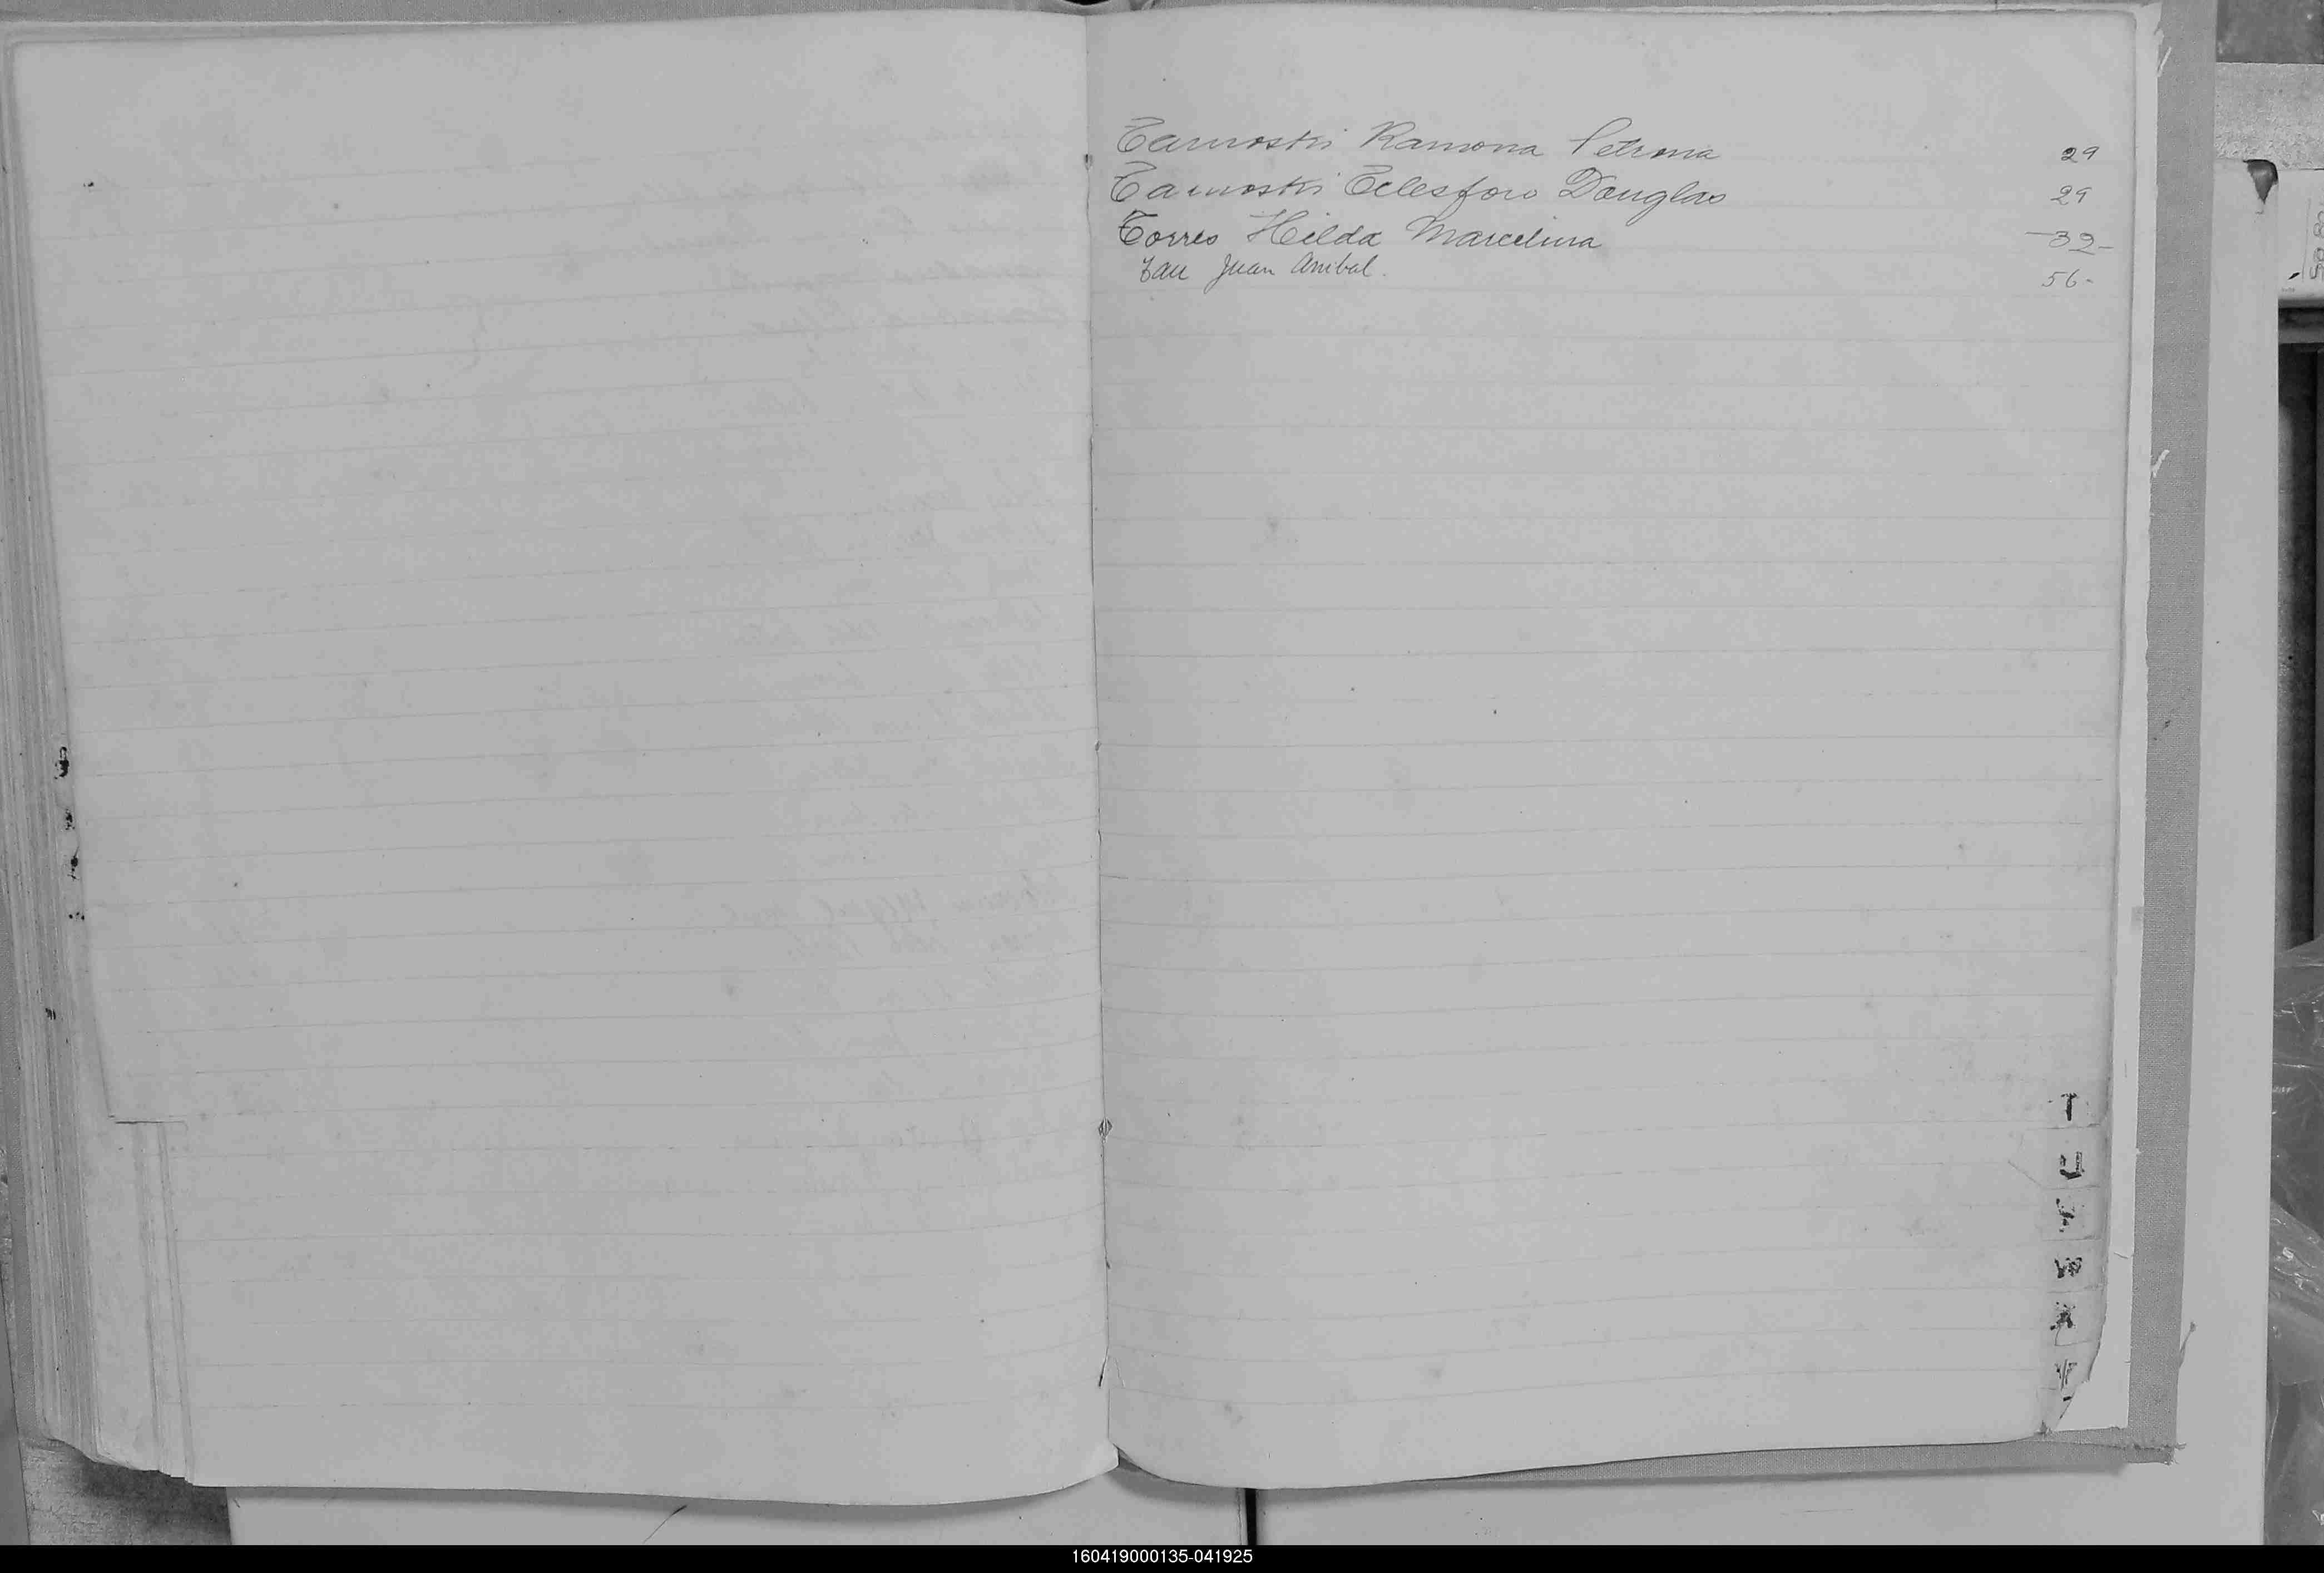 Tarnoski Ramona Petrona 29
Tarnoski Telesforo Douglas 29
Torres Hilda Marcelina -32-
Tau Juan Anibal. 56-
T
U
V
W
X
160419000135-041925